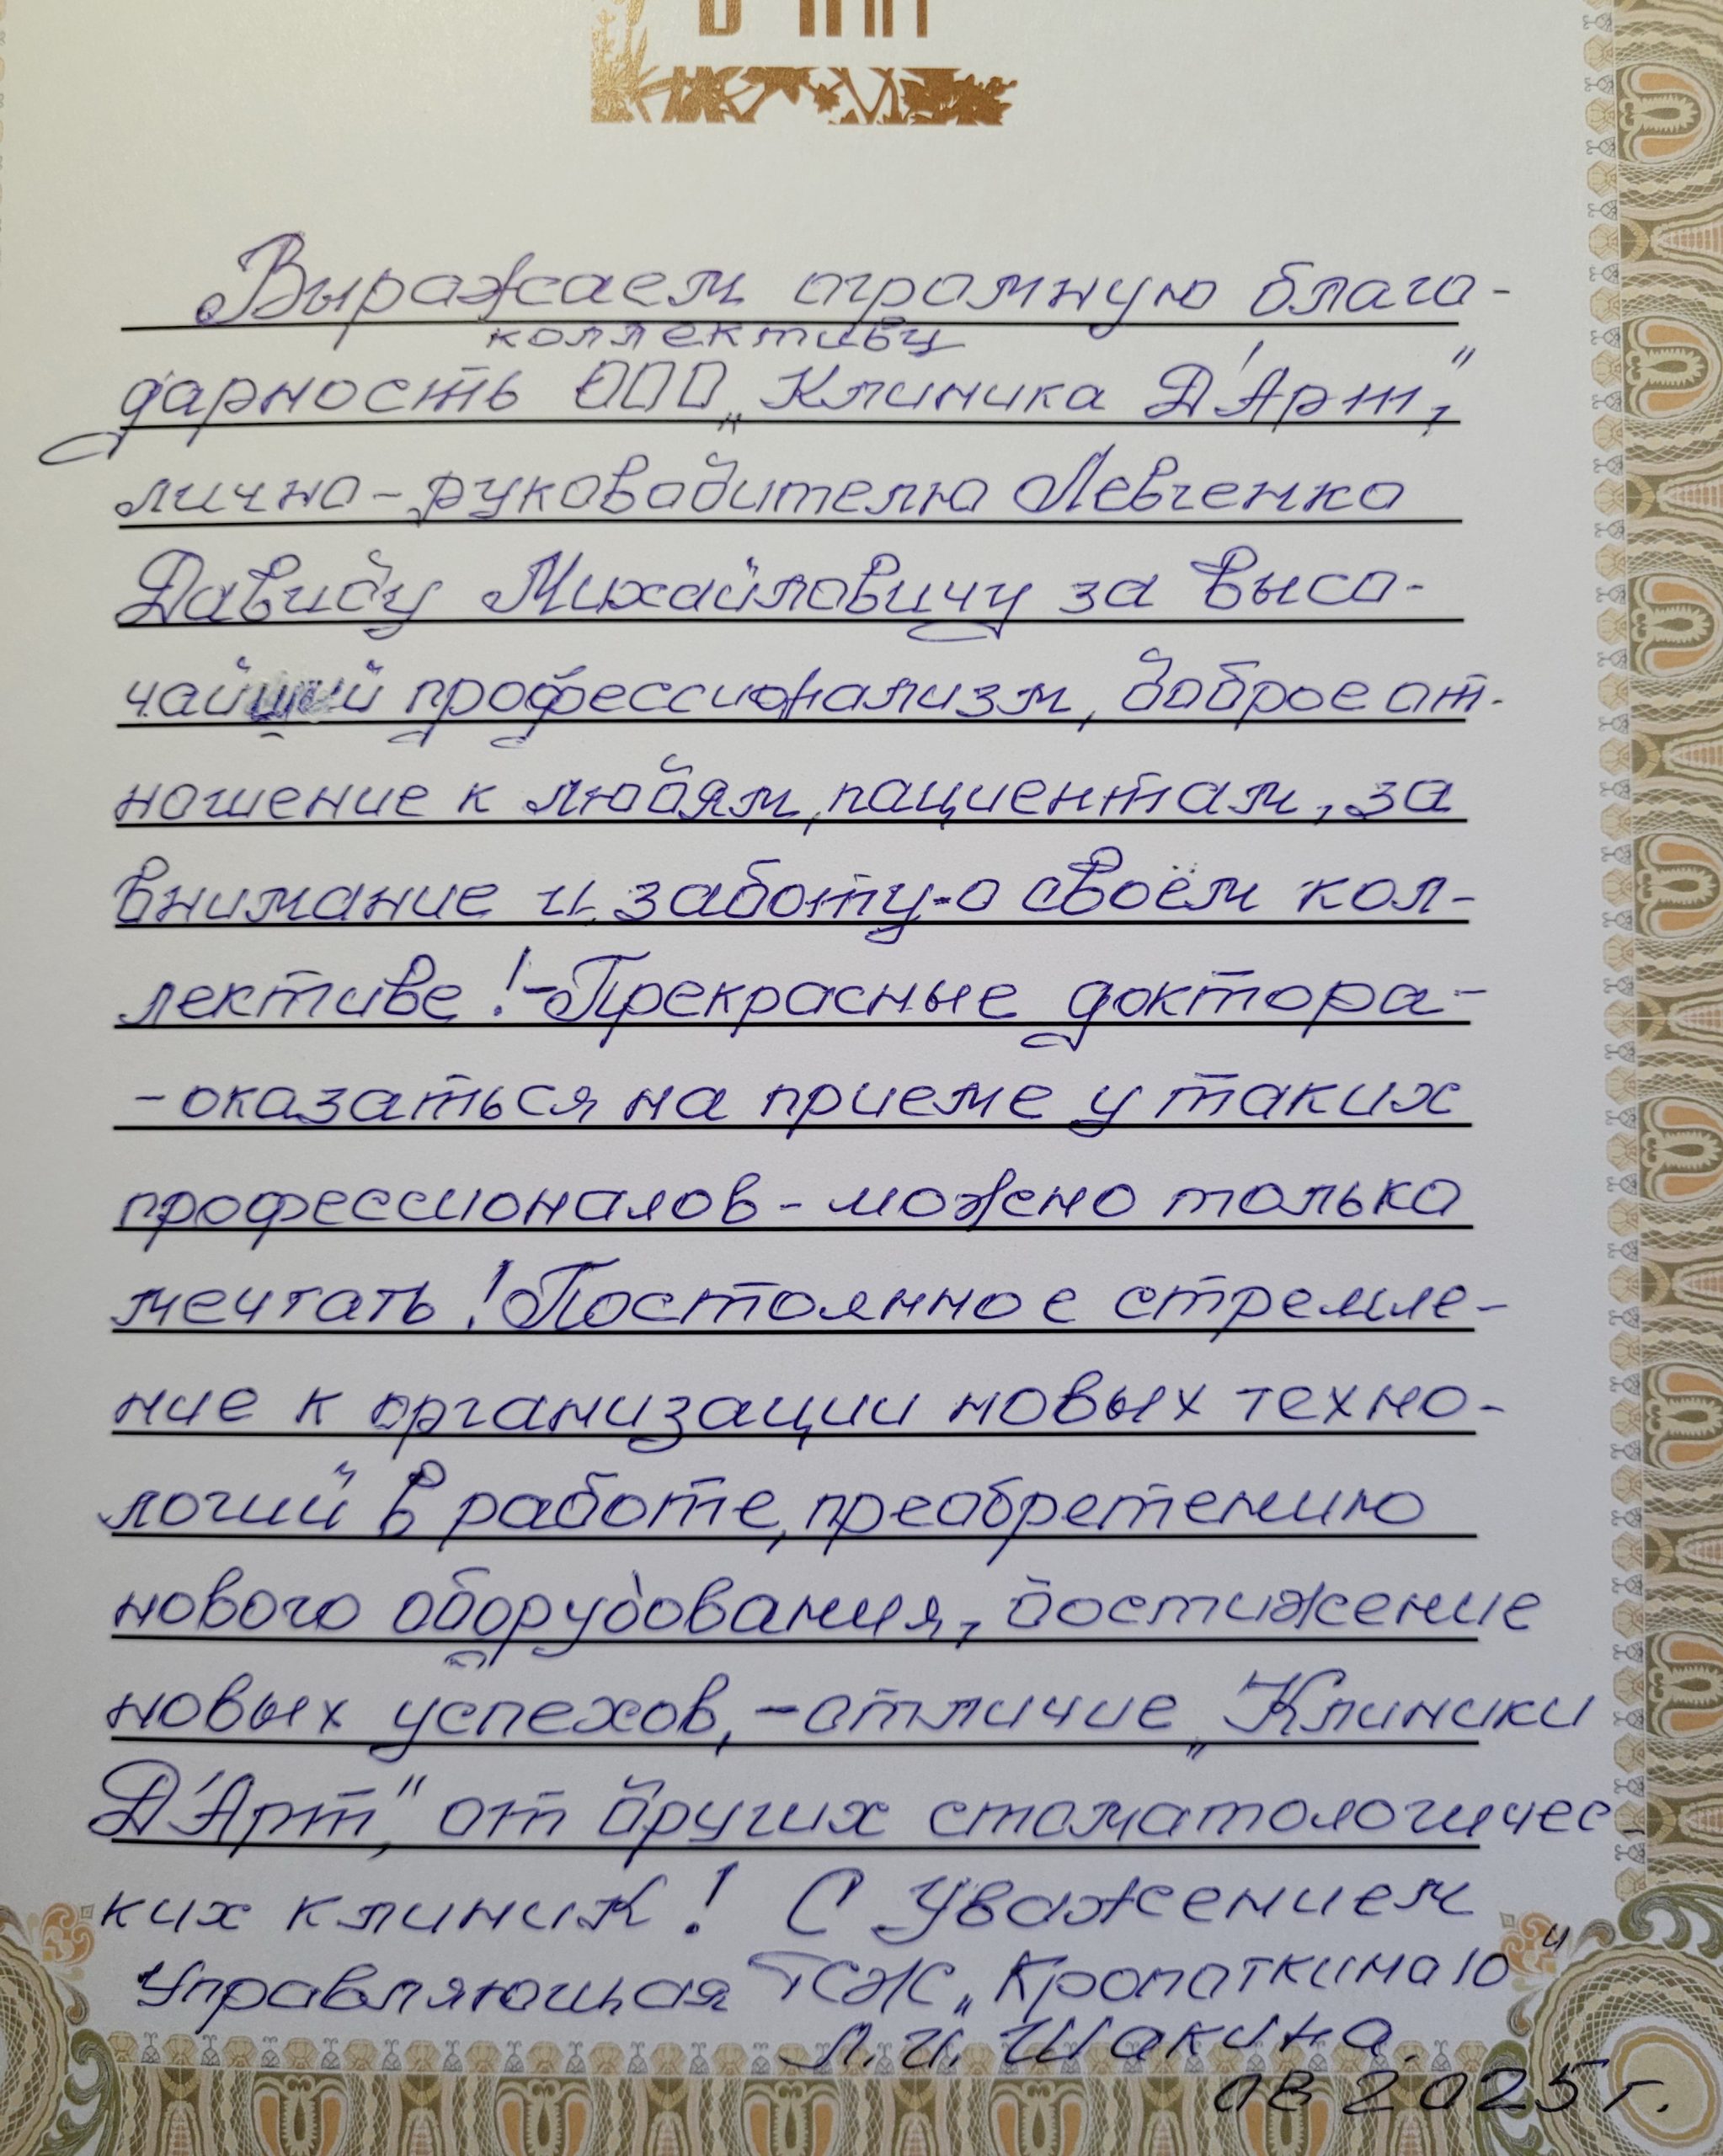 Выражаем огромную благо-
коллективу
дарность ООО „Клиника Д'Арт",
лично-руководителю Левченко
Давиду Михайловичу за высо-
чайший профессионализм, доброе от-
ношение к людям, пациентам, за
внимание и заботу-о своём кол-
лективе!-Прекрасные доктора-
-оказаться на приеме у таких
профессионалов-можно только
мечтать! Постоянное стремле-
ние к организации новых техно-
логий в работе, преобретению
нового оборудования, достижение
новых успехов,-отличие „Клиники
Д'Арт," от других стоматологичес-
ких клиник! С Уважением
Управляющая ТСЖ „Кропоткина 10"
Л.И. Шакина.
08 2025 г.